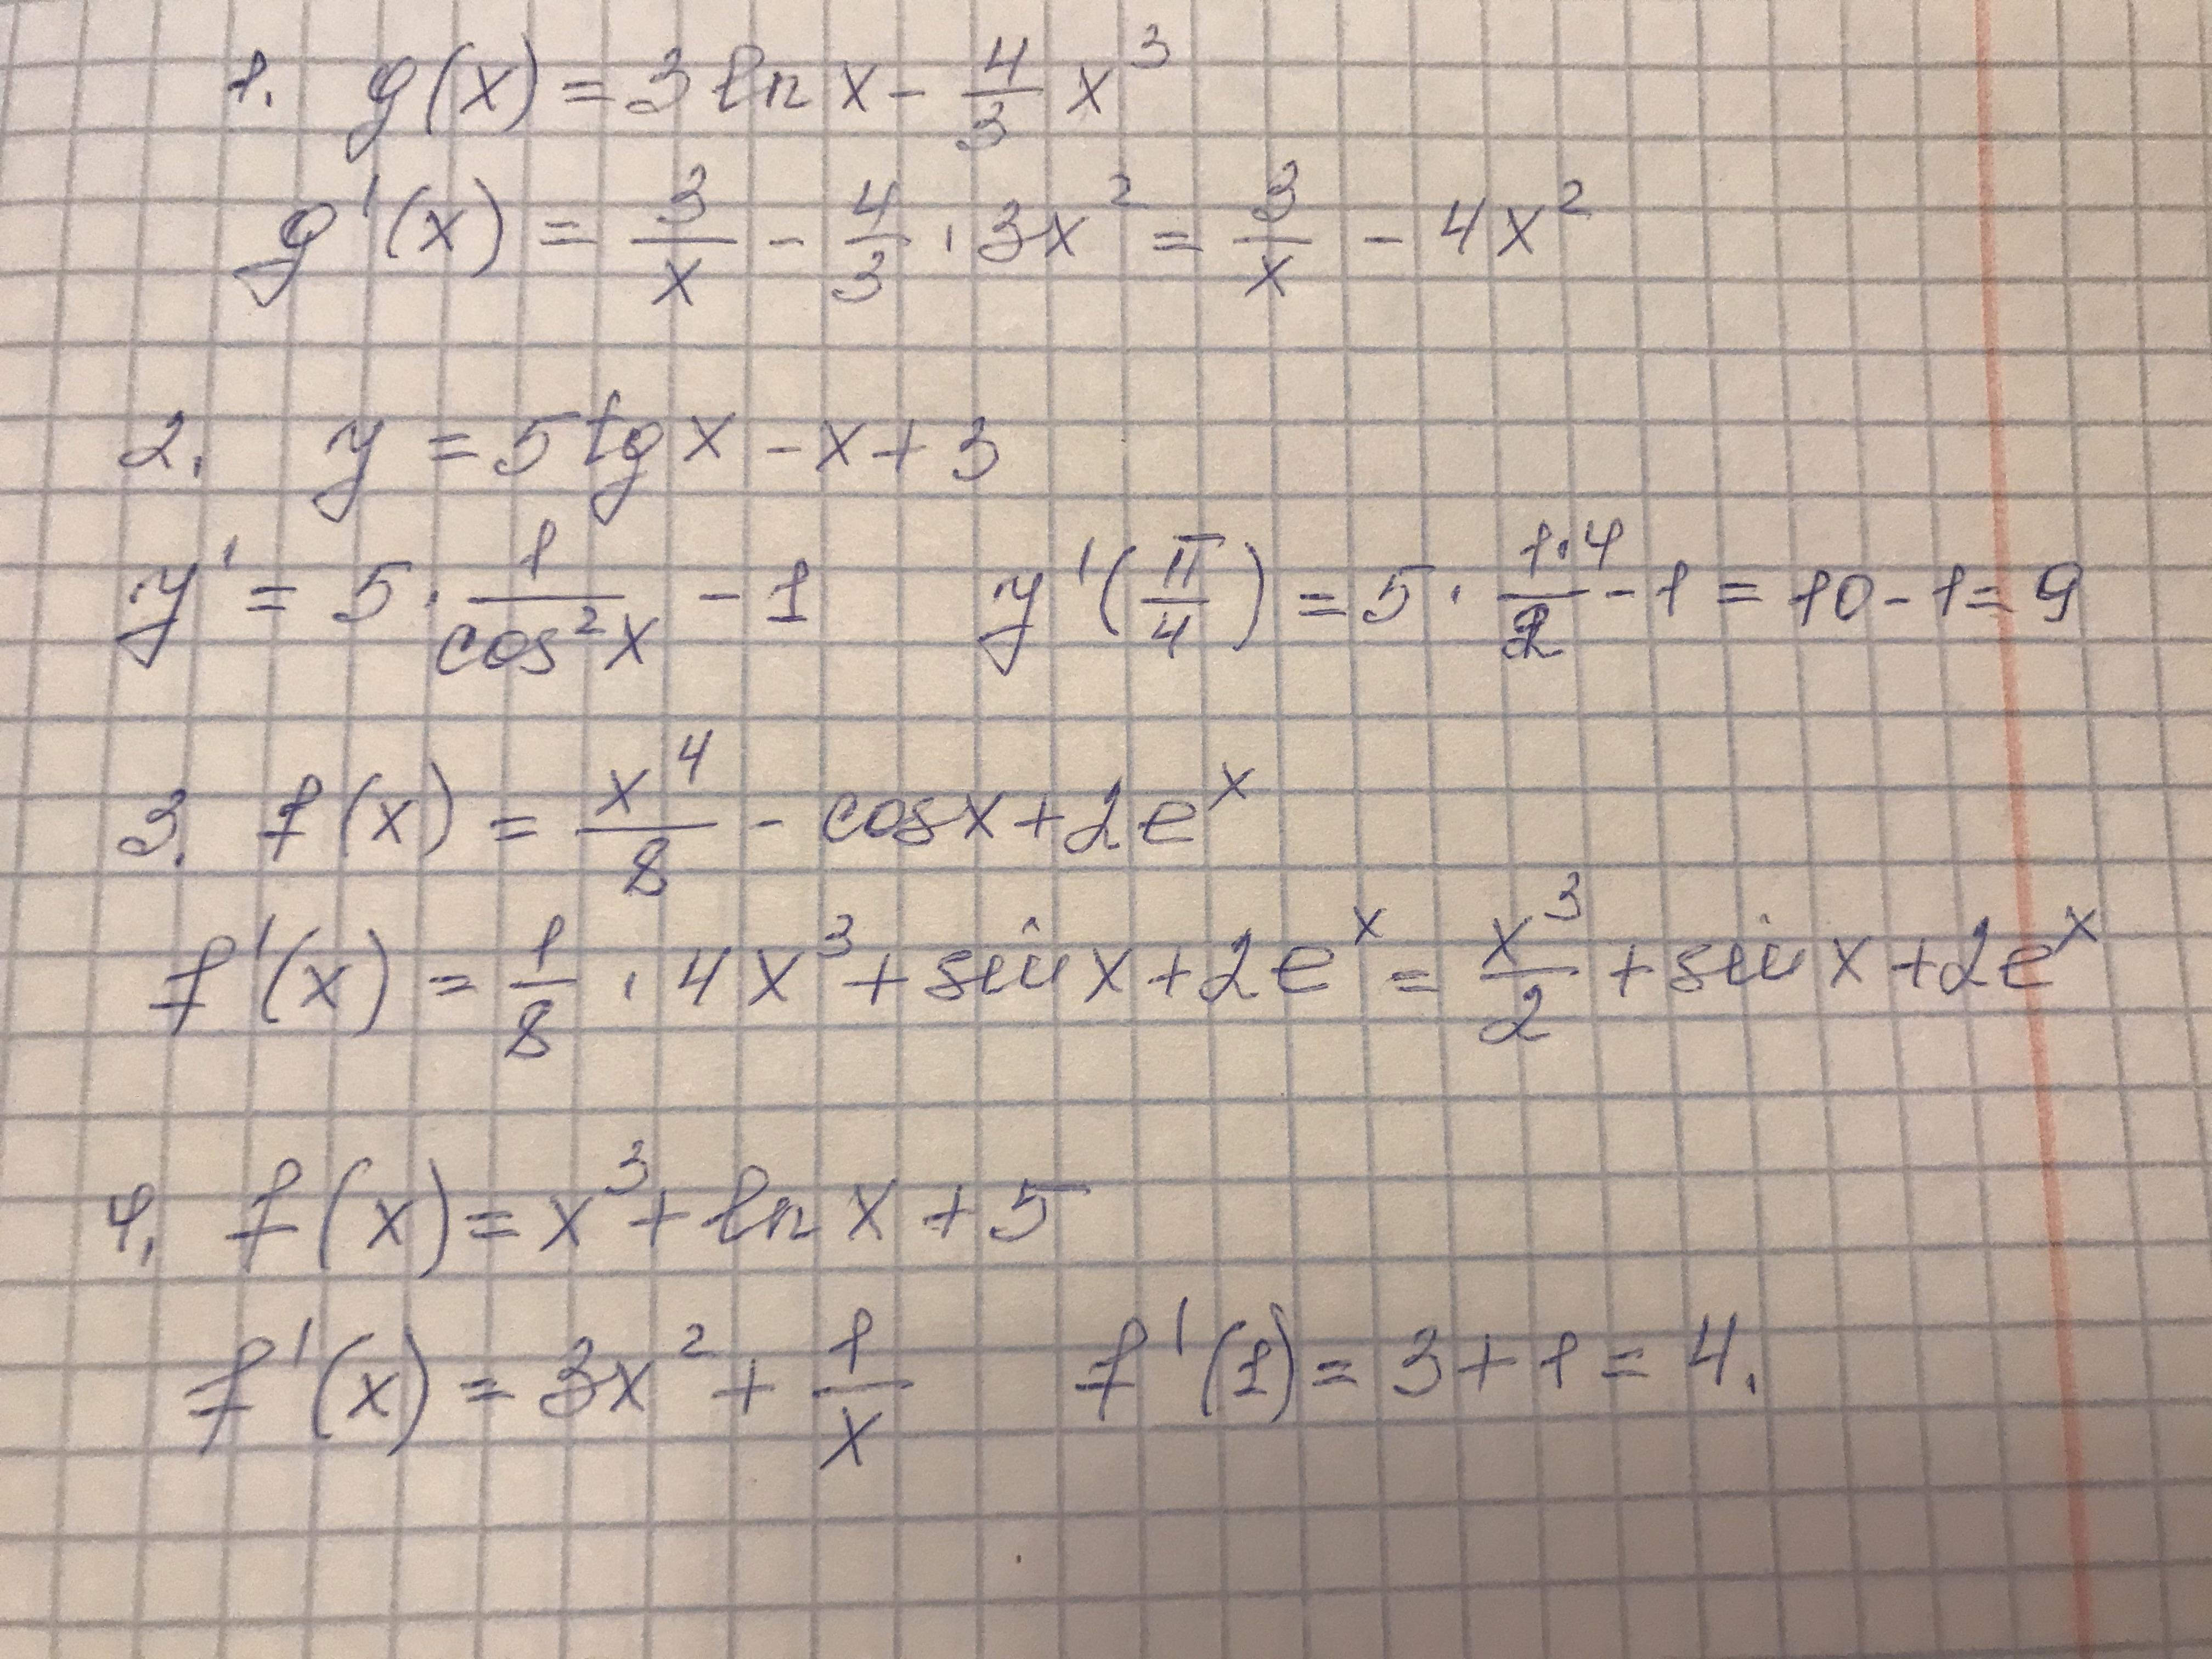 1. g(x) = 3 ln x - 4/3 x³
g'(x) = 3/x - 4/3 · 3x² = 3/x - 4x²
2. y = 5 tg x - x + 3
y' = 5 · 1/cos²x - 1 y'(π/4) = 5 · 1·4/2 - 1 = 10 - 1 = 9
3. f(x) = x⁴/8 - cos x + 2eˣ
f'(x) = 1/8 · 4x³ + sin x + 2eˣ = x³/2 + sin x + 2eˣ
4. f(x) = x³ + ln x + 5
f'(x) = 3x² + 1/x f'(1) = 3 + 1 = 4.